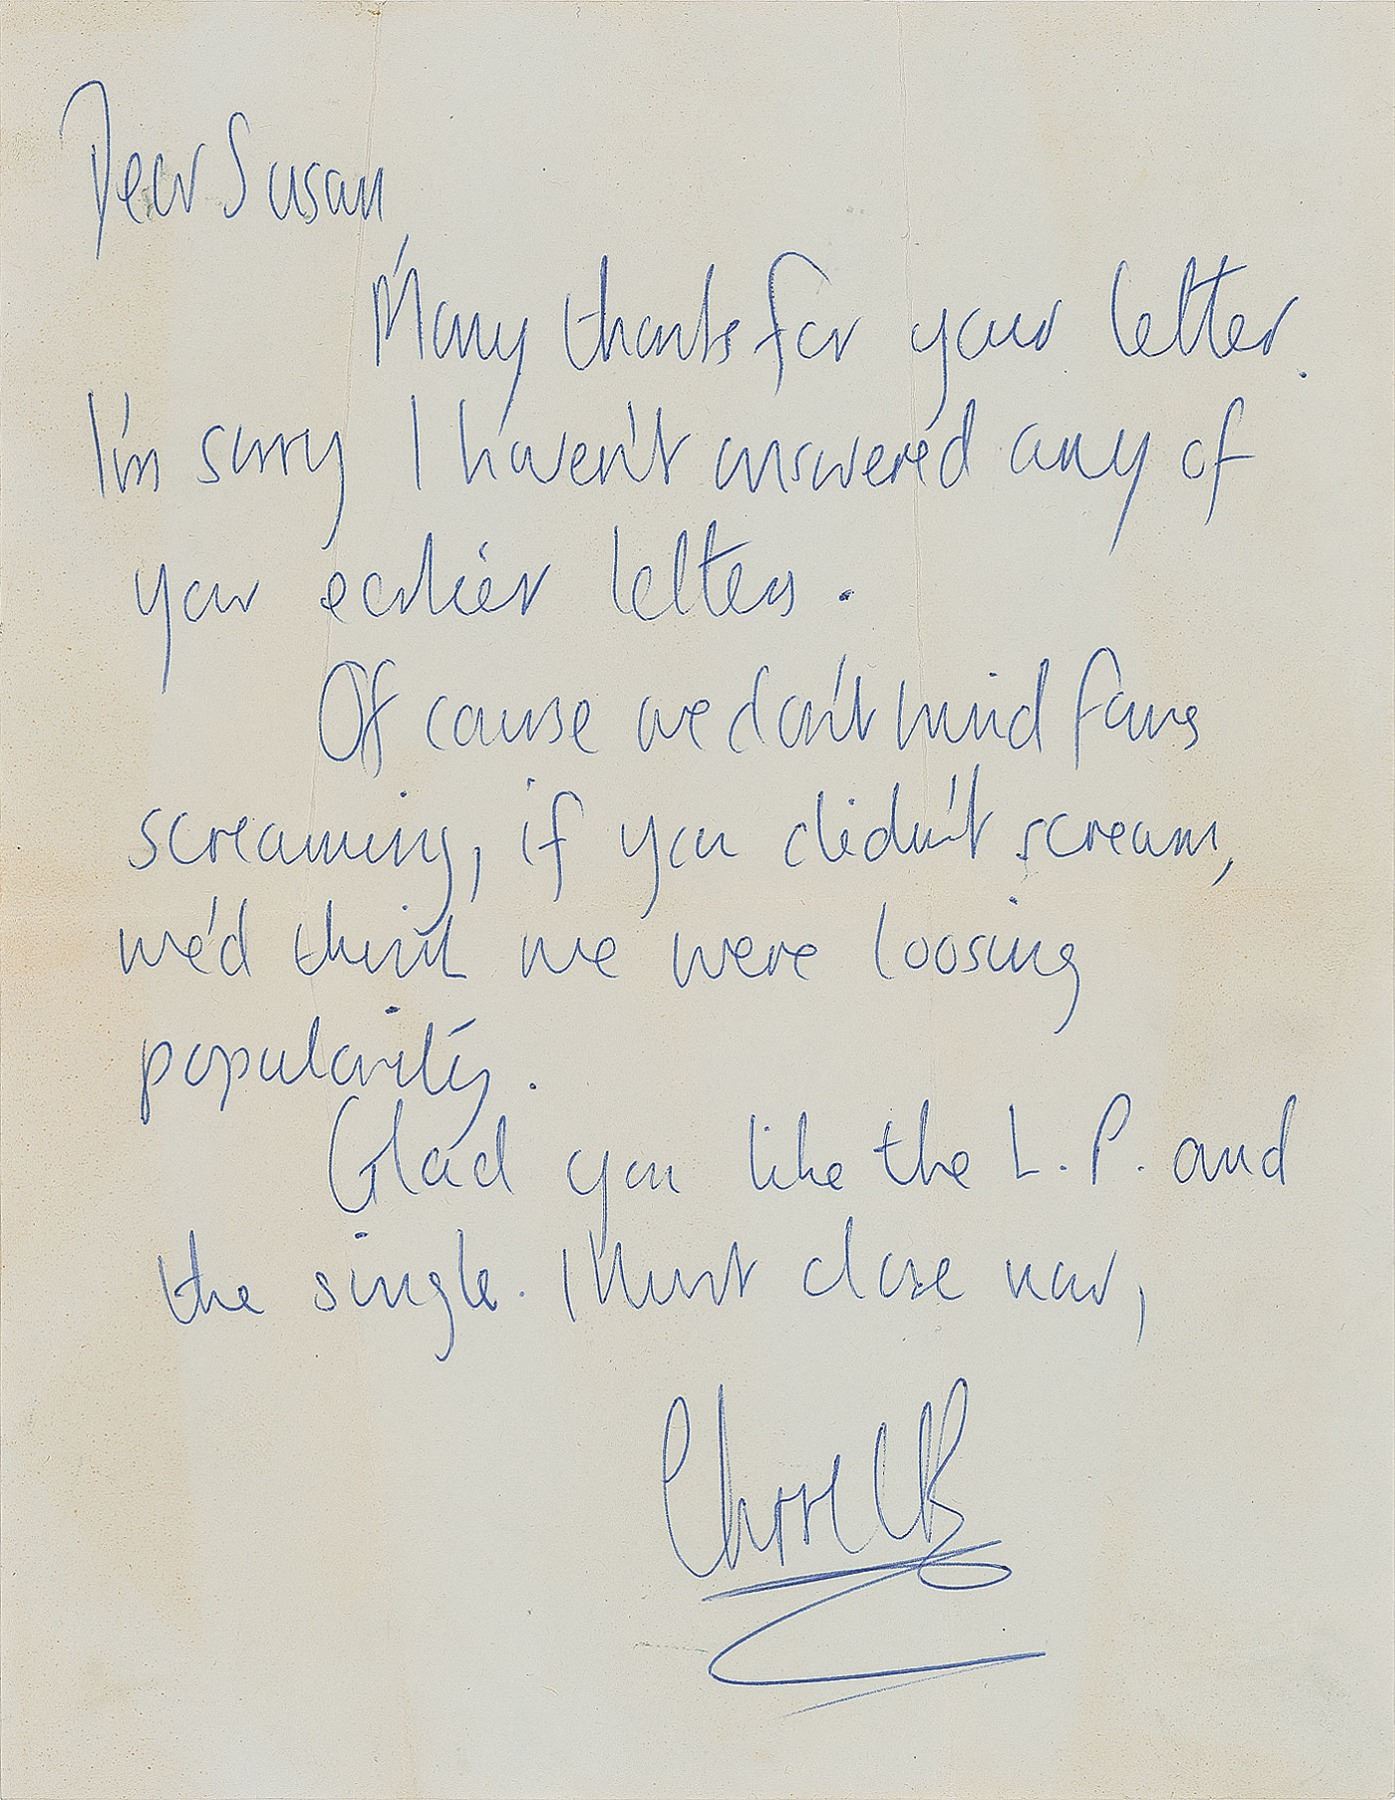 Dear Susan,
Many thanks for your letter.
I'm sorry I haven't answered any of
your earlier letters.
Of cause we don't mind fans
screaming, if you didn't scream,
we'd think we were loosing
popularity.
Glad you like the L.P. and
the single. I must close now,